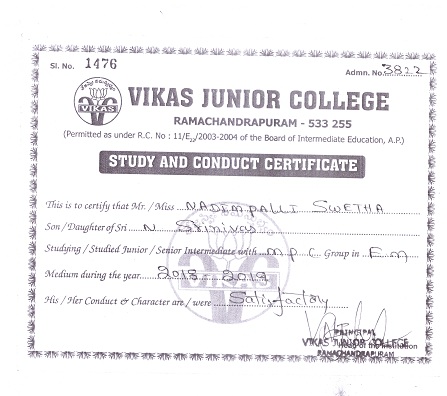 Sl. No. 1476
Admn. No. 3822
VIKAS
VIKAS JUNIOR COLLEGE
RAMACHANDRAPURAM - 533 255
(Permitted as under R.C. No : 11/E /2003-2004 of the Board of Intermediate Education, A.P.)
STUDY AND CONDUCT CERTIFICATE
This is to certify that Mr. / Miss NADEMPALLI SWETHA
Son / Daughter of Sri N Srinivas
Studying / Studied Junior / Senior Intermediate with M P C Group in E M
Medium during the year 2018 - 2019
His / Her Conduct & Character are / were Satisfactory
PRINCIPAL
VIKAS JUNIOR COLLEGE
Head of the Institution
RAMACHANDRAPURAM